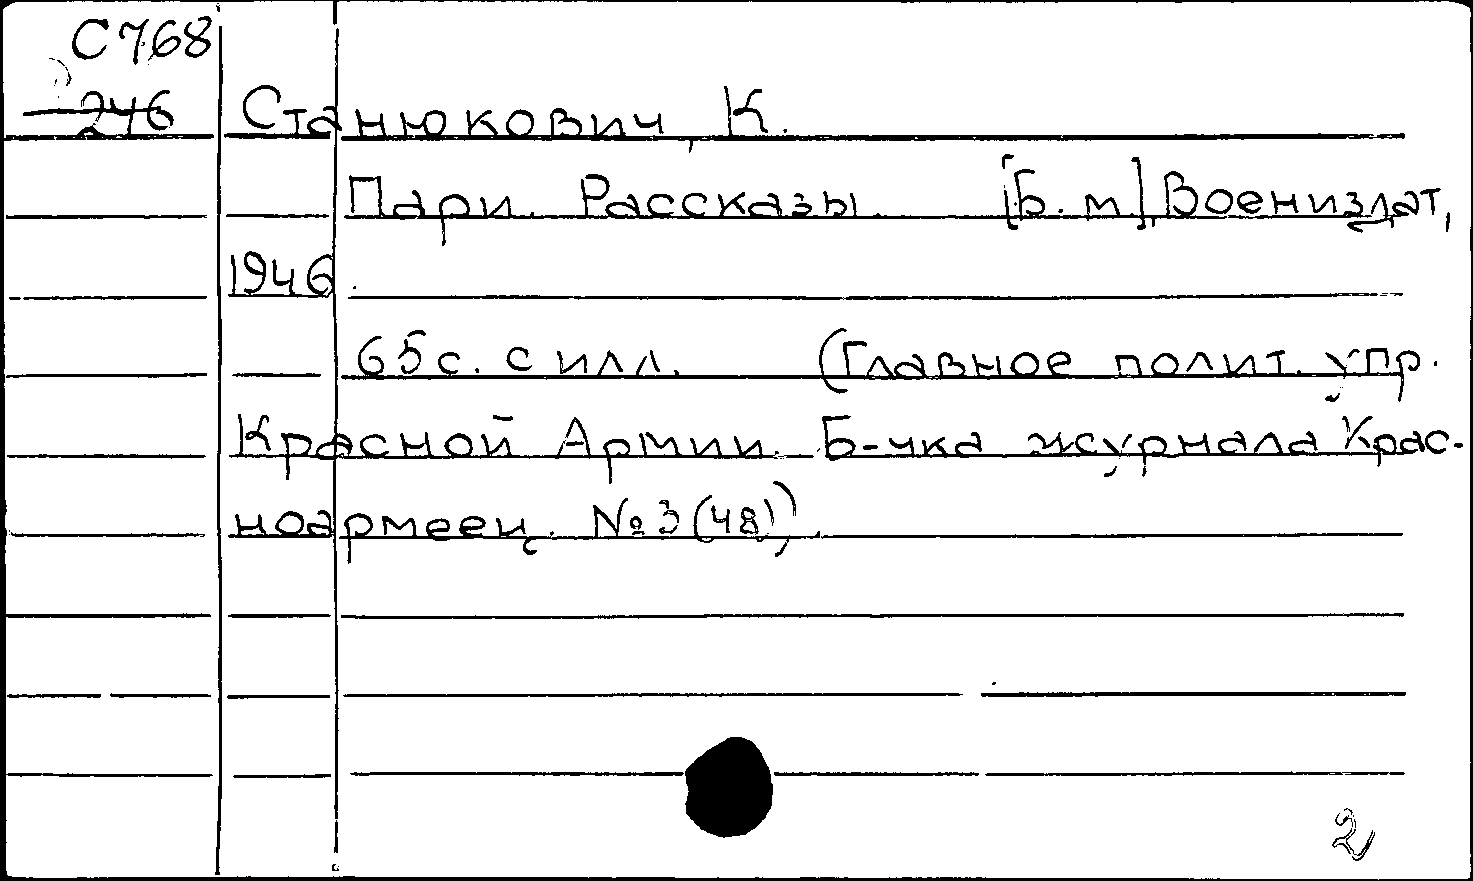 С768
246 Станюкович, К.
Пари. Рассказы. [Б.м], Воениздат,
1946.
65 с. с илл. (Главное полит. упр.
Красной Армии. Б-чка журнала Крас-
ноармеец. №3 (48)).
2